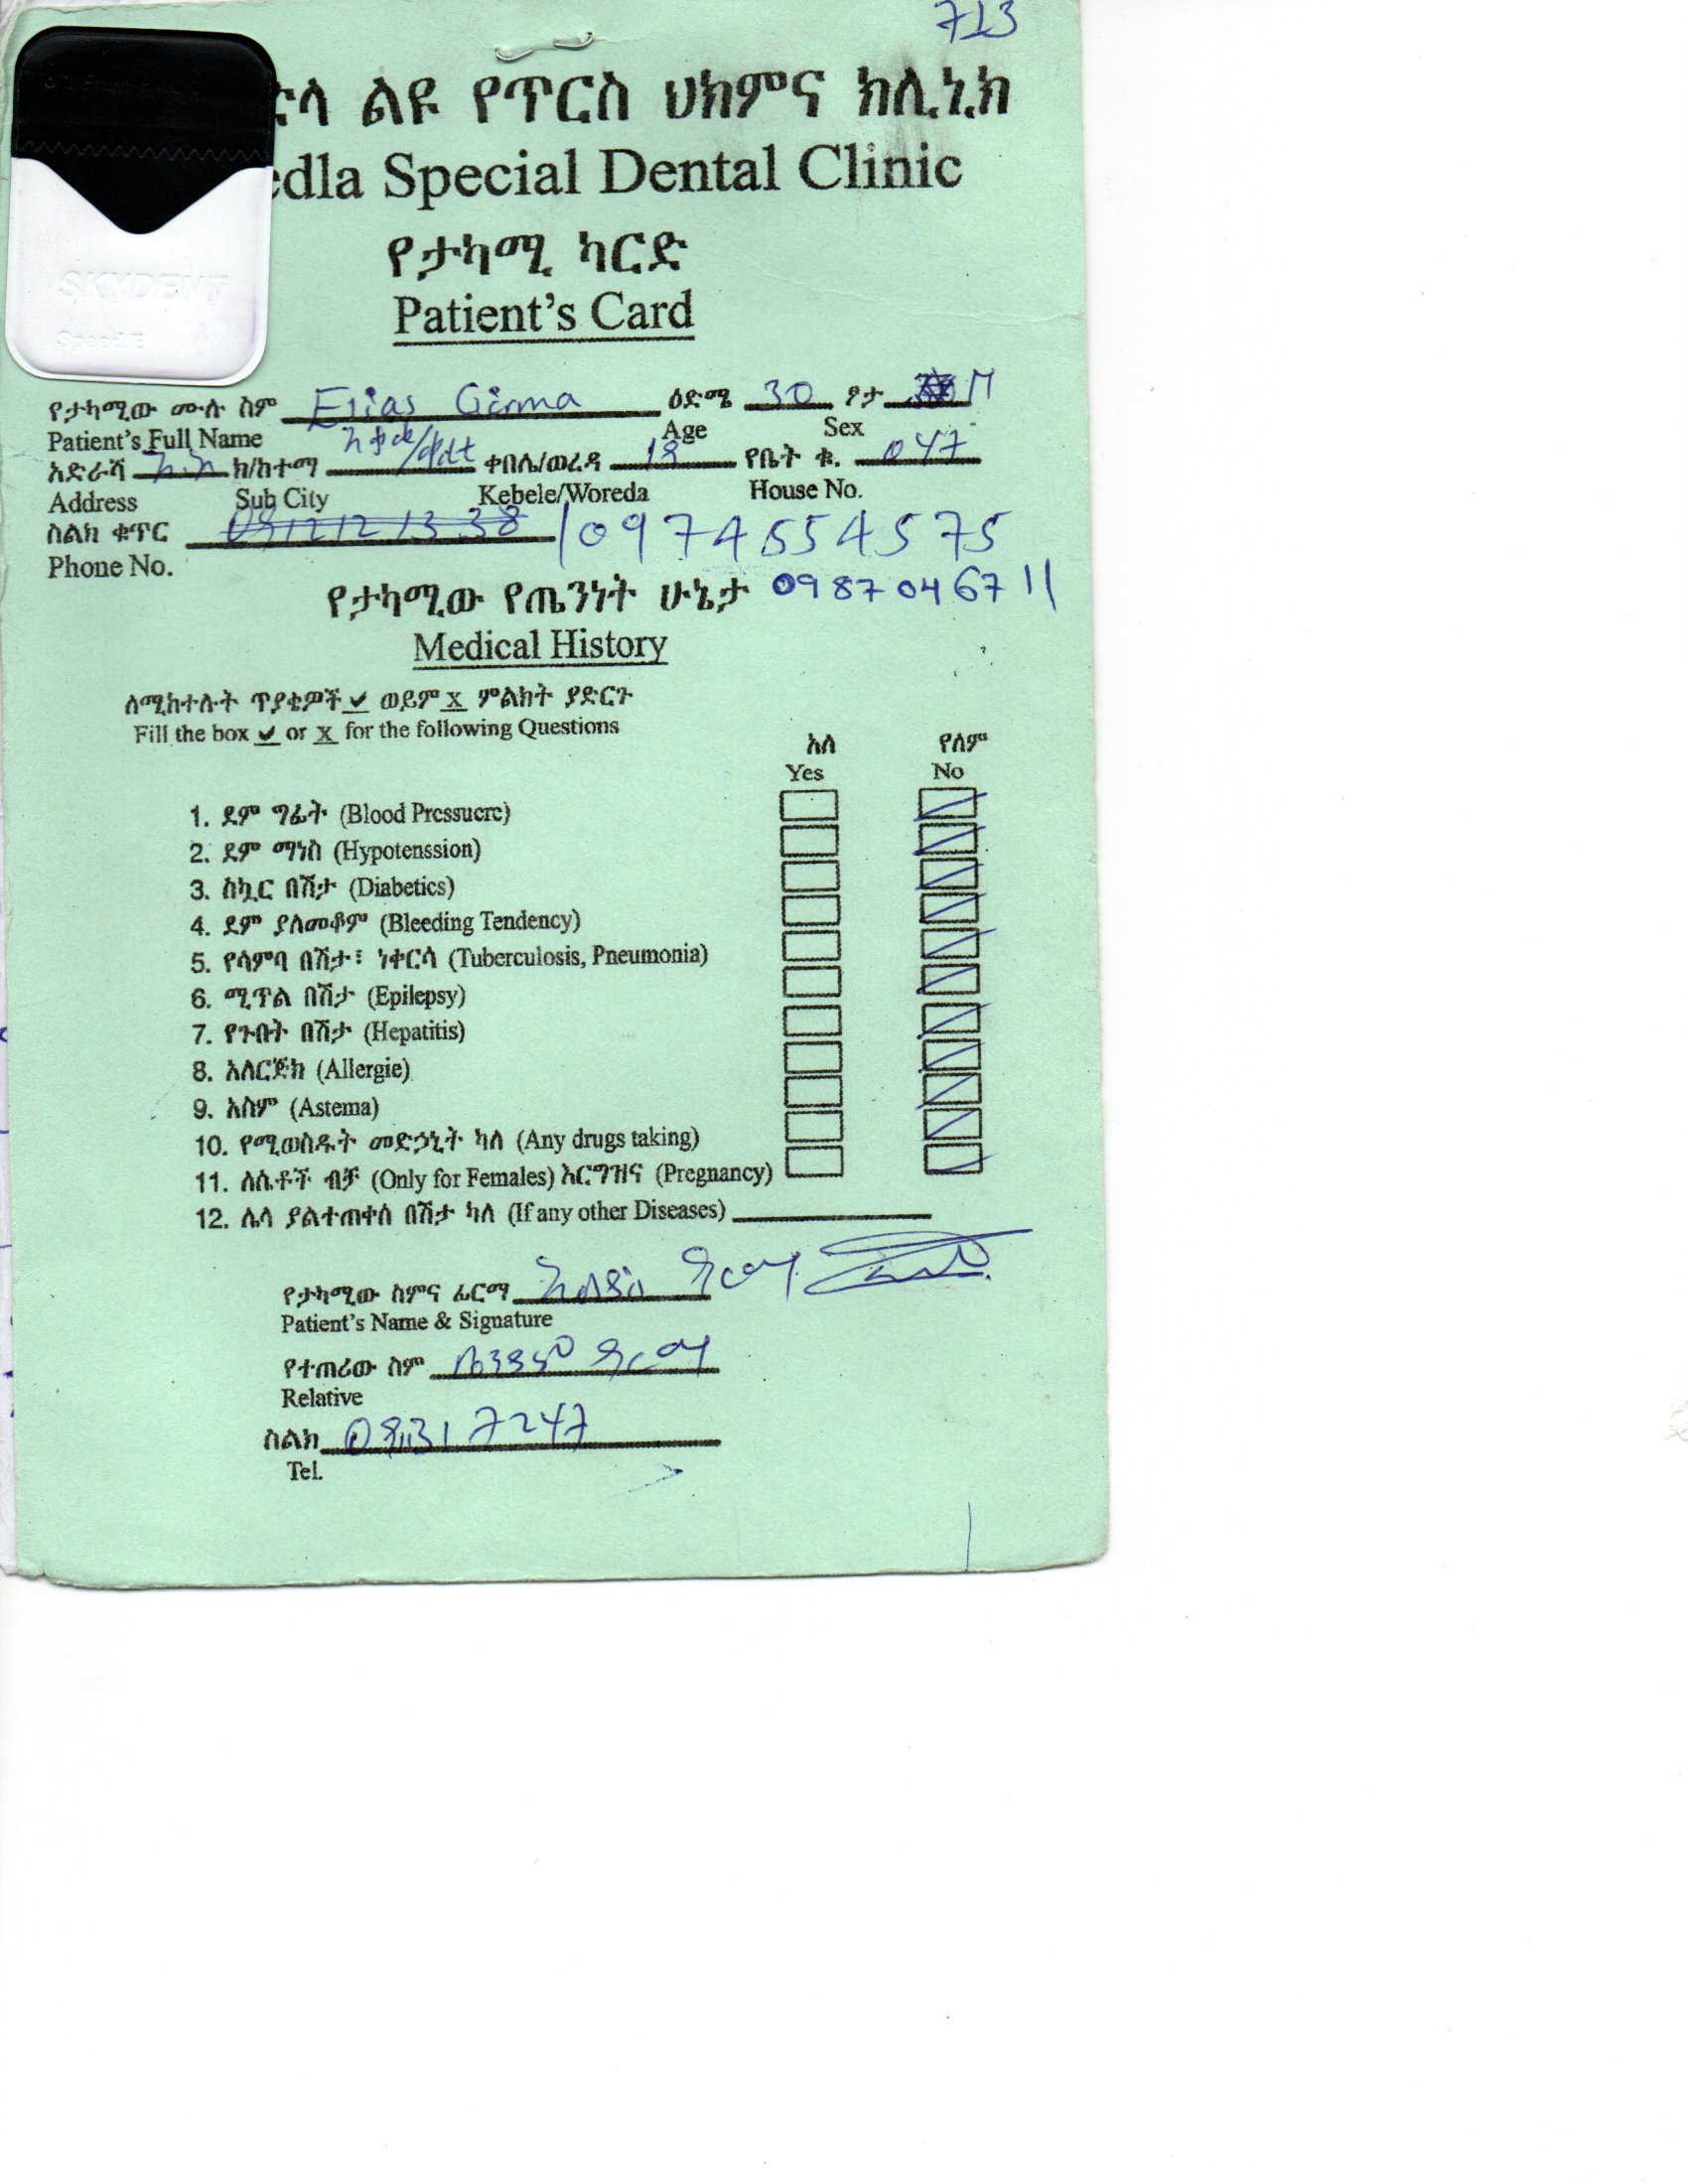 713
ድላ ልዩ የጥርስ ህክምና ክሊኒክ
edla Special Dental Clinic
የታካሚ ካርድ
Patient's Card
SKYDENT
Speed E
የታካሚው ሙሉ ስም Elias Girma ዕድሜ 30 ፆታ M
Patient's Full Name Age Sex
አድራሻ አ.አ ክ/ከተማ ቀበሌ/ወረዳ 18 የቤት ቁ. 047
Address Sub City Kebele/Woreda House No.
ስልክ ቁጥር 0912121338 / 0974554575
Phone No.
የታካሚው የጤንነት ሁኔታ 0987046711
Medical History
ለሚከተሉት ጥያቄዎች ✓ ወይም X ምልክት ያድርጉ
Fill the box ✓ or X for the following Questions
አለ የለም
Yes No
1. ደም ግፊት (Blood Pressuere)
2. ደም ማነስ (Hypotenssion)
3. ስኳር በሽታ (Diabetics)
4. ደም ያለመቆም (Bleeding Tendency)
5. የሳምባ በሽታ፣ ነቀርሳ (Tuberculosis, Pneumonia)
6. ሚጥል በሽታ (Epilepsy)
7. የጉበት በሽታ (Hepatitis)
8. አለርጅክ (Allergie)
9. አስም (Astema)
10. የሚወስዱት መድኃኒት ካለ (Any drugs taking)
11. ለሴቶች ብቻ (Only for Females) እርግዝና (Pregnancy)
12. ሌላ ያልተጠቀሰ በሽታ ካለ (If any other Diseases)
የታካሚው ስምና ፊርማ ኤልያስ ግርማ
Patient's Name & Signature
የተጠሪው ስም ግርማ
Relative
ስልክ
Tel.